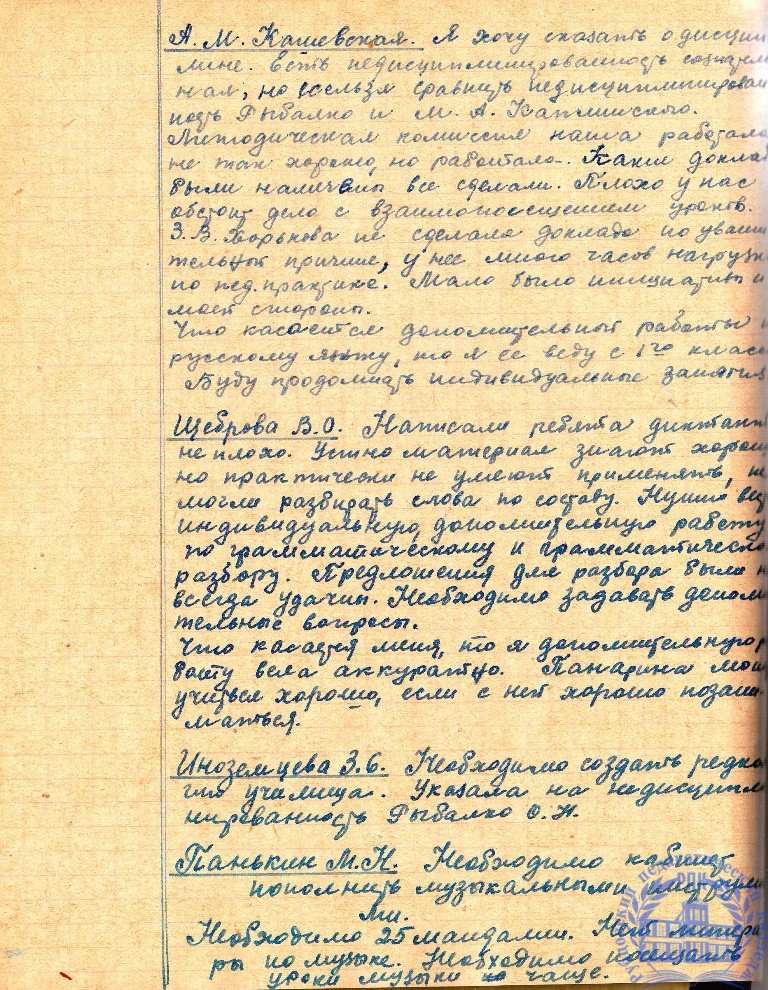 А. М. Кашевская. Я хочу сказать о дисцип
лине. Есть недисциплинированность
ная, но нельзя сравнить недисциплинирован
ность Рыбалко и М. А. Каплинского.
Методическая комиссия наша работала
не так хорошо, но работала. Какие доклад
были намечены все сделали. Плохо у нас
обстоит дело с взаимопосещением уроков.
З. В. Харькова не сделала доклада по уваж
тельной причине, у нее много часов нагрузк
по пед. практике. Мало было инициативы и
моей стороны.
Что касается дополнительной работы
русскому языку, то я ее веду с 1го клас
Буду продолжать индивидуальные заняти
Щеброва В.О. Написали ребята диктант
не плохо. Устно материал знают хорош
но практически не умеют применять, не
могли разбирать слова по составу. Нужно вес
индивидуальную, дополнительную работу
по грамматическому и грамматическо
разбору. Предложения для разбора были н
всегда удачны. Необходимо задавать дополн
тельные вопросы.
Что касается меня, то я дополнительную р
боту вела аккуратно. Панарина мож
учиться хорошо, если с ней хорошо позани
маться.
Иноземцева З.Б. Необходимо создать редко
гию училища. Указала на недисципли
нированность Рыбалко О.Н.
Панькин М.Н. Необходимо кабинет
пополнить музыкальными инструмен
ми.
Необходимо 25 мандалин. Нет литера
ры по музыке. Необходимо посещать
уроки музыки чаще.